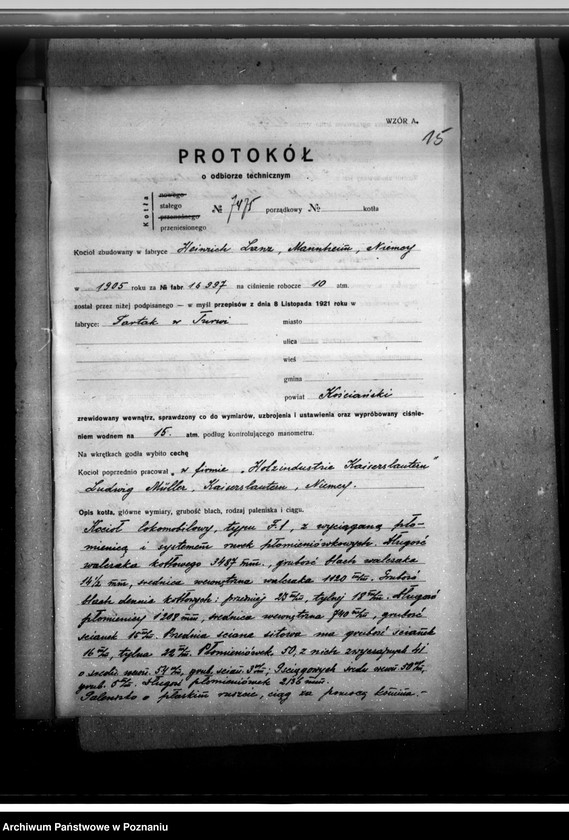 WZÓR A.
15
PROTOKÓŁ
o odbiorze technicznym
Kotła
nowego
stałego
przenośnego
przeniesionego
№ 7475 porządkowy № kotła
Kocioł zbudowany w fabryce Heinrich Lanz, Mannheim, Niemcy
w 1905 roku za № fabr 16997 na ciśnienie robocze 10 atm.
został przez niżej podpisanego — w myśl przepisów z dnia 8 Listopada 1921 roku w
fabryce: Tartak w Turwi miasto
ulica
wieś
gmina
powiat Kościański
zrewidowany wewnątrz, sprawdzony co do wymiarów, uzbrojenia i ustawienia oraz wypróbowany ciśnie-
niem wodnem na 15. atm. podług kontrolującego manometru.
Na wkrętkach godła wybito cechę
Kocioł poprzednio pracował w firmie „Holzindustrie Kaiserslautern"
Ludwig Müller, Kaiserslautern, Niemcy.
Opis kotła, główne wymiary, grubość blach, rodzaj paleniska i ciągu.
Kocioł lokomobilowy, typu F.1, z wyciąganą pło-
mienicą i systemem rurek płomieniówkowych. Długość
walczaka kotłowego 3457 mm., grubość blach walczaka
14½ mm, średnica wewnętrzna walczaka 1120 m/m. Grubość
blach dennic kotłowych: przedniej 23 m/m, tylnej 18 m/m. Długość
płomienicy 1208 mm, średnica wewnętrzna 740 m/m, grubość
ścianek 15 m/m. Przednia ściana sitowa ma grubość ścianek
16 m/m, tylna 22 m/m. Płomieniówek 50, z nich zwyczajnych 41
o średn. wewn. 54 m/m, grub. ścian 3 m/m; 9 ściągowych średn. wewn 50 m/m,
grub. 5 m/m. Długość płomieniówek 2186 mm.
Palenisko o płaskim ruszcie, ciąg za pomocą komina.-
Archiwum Państwowe w Poznaniu